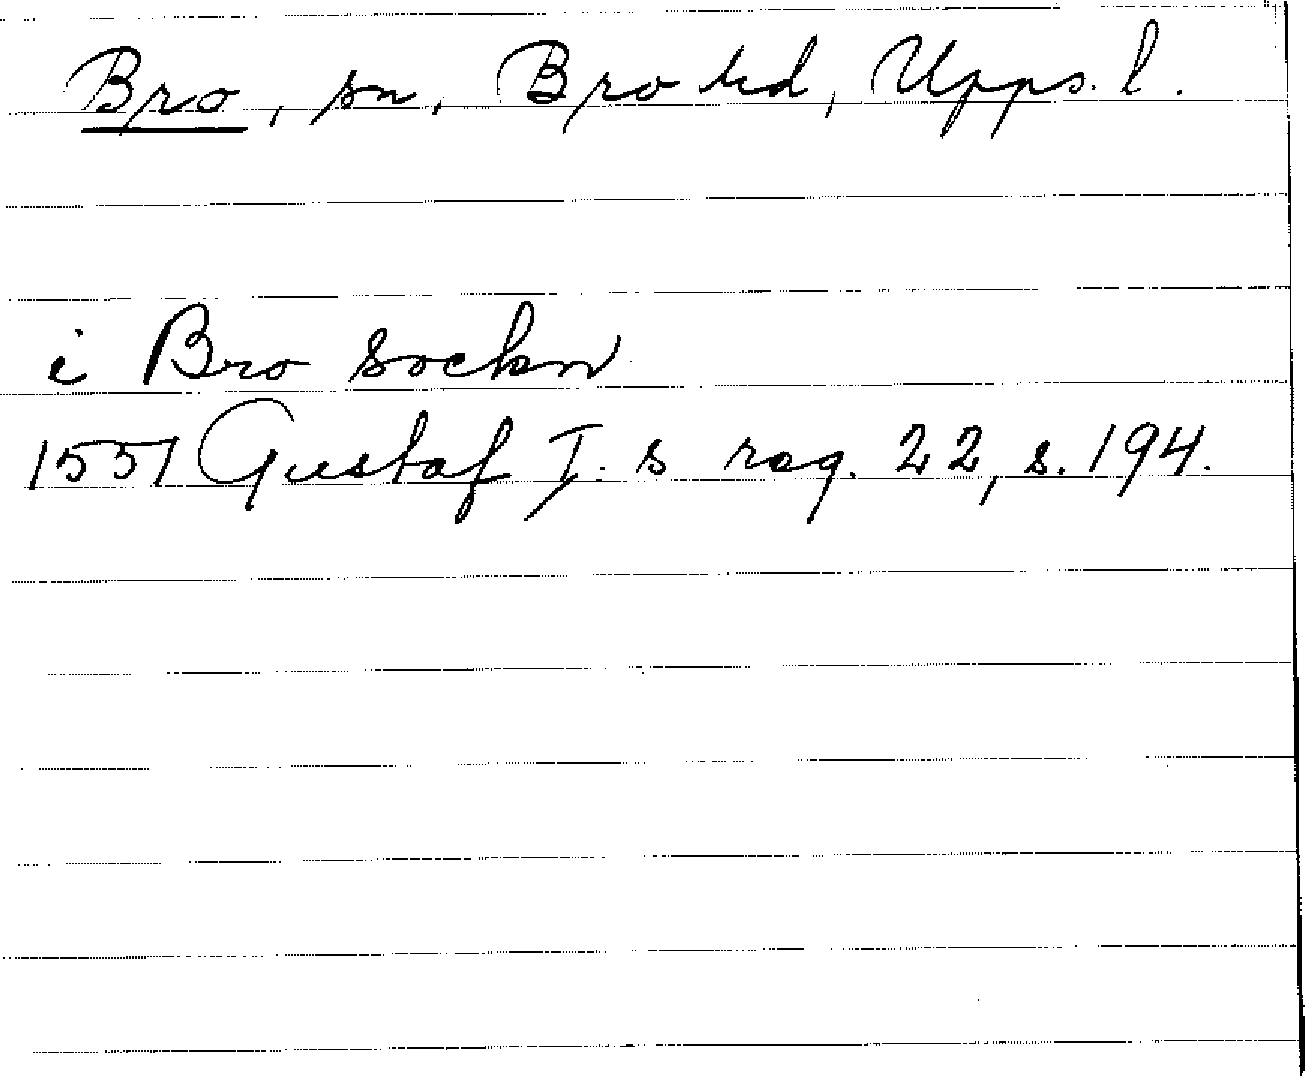 Bro, sn, Bro hd, Upps. l.
i Bro sockn
1551 Gustaf I. s reg. 22, s. 194.